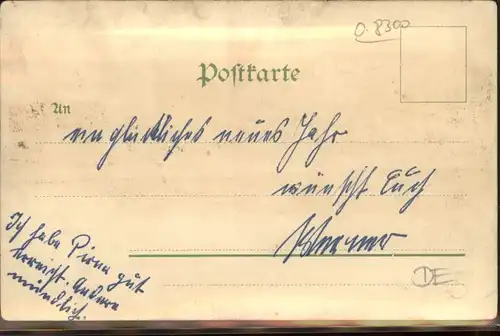 O-8300
Postkarte
An
ein glückliches neues Jahr
wünscht Euch
Werner
Ich habe Pirna gut
erreicht. Andere
mündlich.
DE